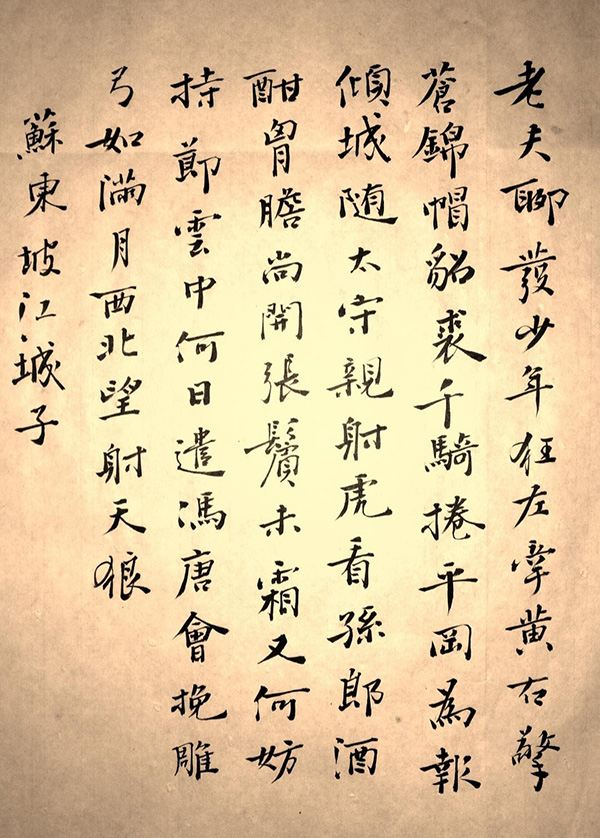 老夫聊發少年狂左牽黃右擎
蒼錦帽貂裘千騎捲平岡為報
傾城随太守親射虎看孫郎酒
酣胷膽尚開張鬢未霜又何妨
持節雲中何日遣馮唐會挽雕
弓如滿月西北望射天狼
蘇東坡江城子